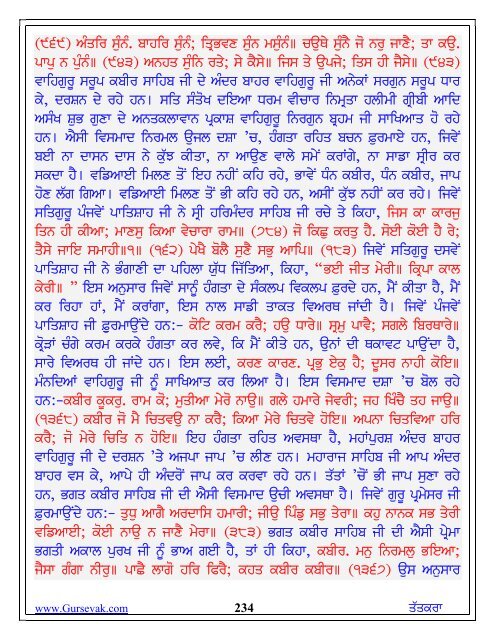 (੯੬੯) ਅੰਤਰਿ ਸੁੰਨੰ. ਬਾਹਰਿ ਸੁੰਨੰ; ਤ੍ਰਿਭਵਣ ਸੁੰਨ ਮਸੁੰਨੰ॥ ਚਉਥੇ ਸੁੰਨੈ ਜੋ ਨਰੁ ਜਾਣੈ; ਤਾ ਕਉ.
ਪਾਪੁ ਨ ਪੁੰਨੰ॥ (੯੪੩) ਅਨਹਤ ਸੁੰਨਿ ਰਤੇ; ਸੇ ਕੈਸੇ॥ ਜਿਸ ਤੇ ਉਪਜੇ; ਤਿਸ ਹੀ ਜੈਸੇ॥ (੯੪੩)
ਵਾਹਿਗੁਰੂ ਸਰੂਪ ਕਬੀਰ ਸਾਹਿਬ ਜੀ ਦੇ ਅੰਦਰ ਬਾਹਰ ਵਾਹਿਗੁਰੂ ਜੀ ਅਨੇਕਾਂ ਸਰਗੁਨ ਸਰੂਪ ਧਾਰ
ਕੇ, ਦਰਸ਼ਨ ਦੇ ਰਹੇ ਹਨ। ਸਤਿ ਸੰਤੋਖ ਦਇਆ ਧਰਮ ਵੀਚਾਰ ਨਿਮ੍ਰਤਾ ਹਲੀਮੀ ਗ੍ਰੀਬੀ ਆਦਿ
ਅਸੰਖ ਸ਼ੁਭ ਗੁਣਾ ਦੇ ਅਨਤਕਲਾਵਾਨ ਪ੍ਰਕਾਸ਼ ਵਾਹਿਗੁਰੂ ਨਿਰਗੁਨ ਬ੍ਰਹਮ ਜੀ ਸਾਖਿਆਤ ਹੋ ਰਹੇ
ਹਨ। ਐਸੀ ਵਿਸਮਾਦ ਨਿਰਮਲ ਉਜਲ ਦਸ਼ਾ 'ਚ, ਹੰਗਤਾ ਰਹਿਤ ਬਚਨ ਫ਼ੁਰਮਾਏ ਹਨ, ਜਿਵੇਂ
ਬਈ ਨਾ ਦਾਸਨ ਦਾਸ ਨੇ ਕੁੱਝ ਕੀਤਾ, ਨਾ ਆਉਣ ਵਾਲੇ ਸਮੇਂ ਕਰਾਂਗੇ, ਨਾ ਸਾਡਾ ਸ੍ਰੀਰ ਕਰ
ਸਕਦਾ ਹੈ। ਵਡਿਆਈ ਮਿਲਣ ਤੋਂ ਇਹ ਨਹੀਂ ਕਹਿ ਰਹੇ, ਭਾਵੇਂ ਧੰਨ ਕਬੀਰ, ਧੰਨ ਕਬੀਰ, ਜਾਪ
ਹੋਣ ਲੱਗ ਗਿਆ। ਵਡਿਆਈ ਮਿਲਣ ਤੋਂ ਭੀ ਕਹਿ ਰਹੇ ਹਨ, ਅਸੀਂ ਕੁੱਝ ਨਹੀਂ ਕਰ ਰਹੇ। ਜਿਵੇਂ
ਸਤਿਗੁਰੂ ਪੰਜਵੇਂ ਪਾਤਿਸ਼ਾਹ ਜੀ ਨੇ ਸ੍ਰੀ ਹਰਿਮੰਦਰ ਸਾਹਿਬ ਜੀ ਰਚੇ ਤੇ ਕਿਹਾ, ਜਿਸ ਕਾ ਕਾਰਜੁ
ਤਿਨ ਹੀ ਕੀਆ; ਮਾਣਸੁ ਕਿਆ ਵੇਚਾਰਾ ਰਾਮ॥ (੭੮੪) ਜੋ ਕਿਛੁ ਕਰਤੁ ਹੈ. ਸੋਈ ਕੋਈ ਹੈ ਰੇ;
ਤੈਸੇ ਜਾਇ ਸਮਾਹੀ॥੧॥ (੧੬੨) ਪੇਖੈ ਬੋਲੈ ਸੁਣੈ ਸਭੁ ਆਪਿ॥ (੧੮੩) ਜਿਵੇਂ ਸਤਿਗੁਰੂ ਦਸਵੇਂ
ਪਾਤਿਸ਼ਾਹ ਜੀ ਨੇ ਭੰਗਾਣੀ ਦਾ ਪਹਿਲਾ ਯੁੱਧ ਜਿੱਤਿਆ, ਕਿਹਾ, "ਭਈ ਜੀਤ ਮੇਰੀ॥ ਕ੍ਰਿਪਾ ਕਾਲ
ਕੇਰੀ॥ " ਇਸ ਅਨੁਸਾਰ ਜਿਵੇਂ ਸਾਨੂੰ ਹੰਗਤਾ ਦੇ ਸੰਕਲਪ ਵਿਕਲਪ ਫ਼ੁਰਦੇ ਹਨ, ਮੈਂ ਕੀਤਾ ਹੈ, ਮੈਂ
ਕਰ ਰਿਹਾ ਹਾਂ, ਮੈਂ ਕਰਾਂਗਾ, ਇਸ ਨਾਲ ਸਾਡੀ ਤਾਕਤ ਵਿਅਰਥ ਜਾਂਦੀ ਹੈ। ਜਿਵੇਂ ਪੰਜਵੇਂ
ਪਾਤਿਸ਼ਾਹ ਜੀ ਫ਼ੁਰਮਾਉਂਦੇ ਹਨ:– ਕੋਟਿ ਕਰਮ ਕਰੈ; ਹਉ ਧਾਰੇ॥ ਸ੍ਰਮੁ ਪਾਵੈ; ਸਗਲੇ ਬਿਰਥਾਰੇ॥
ਕ੍ਰੋੜਾਂ ਚੰਗੇ ਕਰਮ ਕਰਕੇ ਹੰਗਤਾ ਕਰ ਲਵੇ, ਕਿ ਮੈਂ ਕੀਤੇ ਹਨ, ਉਨਾਂ ਦੀ ਥਕਾਵਟ ਪਾਉਂਦਾ ਹੈ,
ਸਾਰੇ ਵਿਅਰਥ ਹੀ ਜਾਂਦੇ ਹਨ। ਇਸ ਲਈ, ਕਰਣ ਕਾਰਣ. ਪ੍ਰਭੁ ਏਕੁ ਹੈ; ਦੂਸਰ ਨਾਹੀ ਕੋਇ॥
ਮੰਨਦਿਆਂ ਵਾਹਿਗੁਰੂ ਜੀ ਨੂੰ ਸਾਖਿਆਤ ਕਰ ਲਿਆ ਹੈ। ਇਸ ਵਿਸਮਾਦ ਦਸ਼ਾ 'ਚ ਬੋਲ ਰਹੇ
ਹਨ:–ਕਬੀਰ ਕੂਕਰੁ. ਰਾਮ ਕੋ; ਮੁਤੀਆ ਮੇਰੋ ਨਾਉ॥ ਗਲੇ ਹਮਾਰੇ ਜੇਵਰੀ; ਜਹ ਖਿੰਚੈ ਤਹ ਜਾਉ॥
(੧੩੬੮) ਕਬੀਰ ਜੋ ਮੈ ਚਿਤਵਉ ਨਾ ਕਰੈ; ਕਿਆ ਮੇਰੇ ਚਿਤਵੇ ਹੋਇ॥ ਅਪਨਾ ਚਿਤਵਿਆ ਹਰਿ
ਕਰੈ; ਜੋ ਮੇਰੇ ਚਿਤਿ ਨ ਹੋਇ॥ ਇਹ ਹੰਗਤਾ ਰਹਿਤ ਅਵਸਥਾ ਹੈ, ਮਹਾਂਪੁਰਸ਼ ਅੰਦਰ ਬਾਹਰ
ਵਾਹਿਗੁਰੂ ਜੀ ਦੇ ਦਰਸ਼ਨ 'ਤੇ ਅਜਪਾ ਜਾਪ 'ਚ ਲੀਣ ਹਨ। ਮਹਾਰਾਜ ਸਾਹਿਬ ਜੀ ਆਪ ਅੰਦਰ
ਬਾਹਰ ਵਸ ਕੇ, ਆਪੇ ਹੀ ਅੰਦਰੋਂ ਜਾਪ ਕਰ ਕਰਵਾ ਰਹੇ ਹਨ। ਤੱਤਾਂ 'ਚੋਂ ਭੀ ਜਾਪ ਸੁਣਾ ਰਹੇ
ਹਨ, ਭਗਤ ਕਬੀਰ ਸਾਹਿਬ ਜੀ ਦੀ ਐਸੀ ਵਿਸਮਾਦ ਉਚੀ ਅਵਸਥਾ ਹੈ। ਜਿਵੇਂ ਗੁਰੂ ਪ੍ਰਮੇਸਰ ਜੀ
ਫ਼ੁਰਮਾਉਂਦੇ ਹਨ:– ਤੁਧੁ ਆਗੈ ਅਰਦਾਸਿ ਹਮਾਰੀ; ਜੀਉ ਪਿੰਡੁ ਸਭੁ ਤੇਰਾ॥ ਕਹੁ ਨਾਨਕ ਸਭ ਤੇਰੀ
ਵਡਿਆਈ; ਕੋਈ ਨਾਉ ਨ ਜਾਣੈ ਮੇਰਾ॥ (੩੮੩) ਭਗਤ ਕਬੀਰ ਸਾਹਿਬ ਜੀ ਦੀ ਐਸੀ ਪ੍ਰੇਮਾ
ਭਗਤੀ ਅਕਾਲ ਪੁਰਖ ਜੀ ਨੂੰ ਭਾਅ ਗਈ ਹੈ, ਤਾਂ ਹੀ ਕਿਹਾ, ਕਬੀਰ. ਮਨੁ ਨਿਰਮਲੁ ਭਇਆ;
ਜੈਸਾ ਗੰਗਾ ਨੀਰੁ॥ ਪਾਛੈ ਲਾਗੋ ਹਰਿ ਫਿਰੈ; ਕਹਤ ਕਬੀਰ ਕਬੀਰ॥ (੧੩੬੭) ਉਸ ਅਨੁਸਾਰ
www.Gursevak.com 234 ਤੱਤਕਰਾ